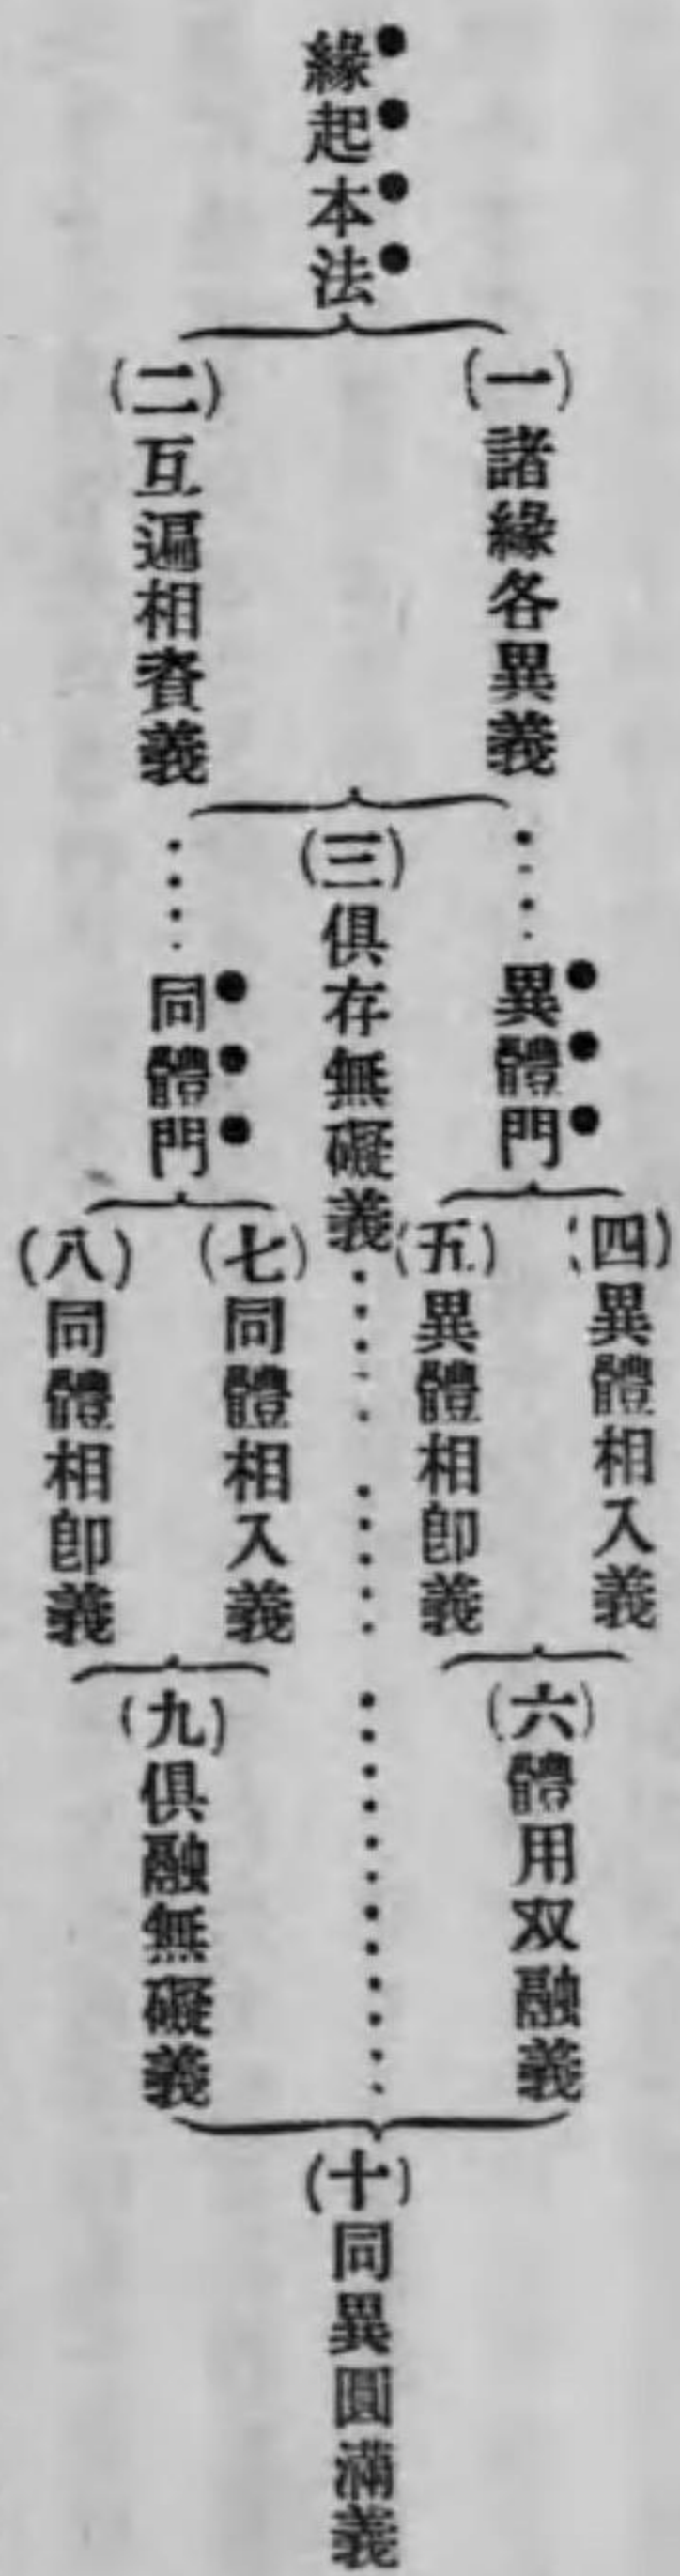 緣起本法
(一)諸緣各異義
(二)互遍相資義
(三)俱存無礙義
異體門
同體門
(四)異體相入義
(五)異體相卽義
(六)體用双融義
(七)同體相入義
(八)同體相卽義
(九)俱融無礙義
(十)同異圓滿義